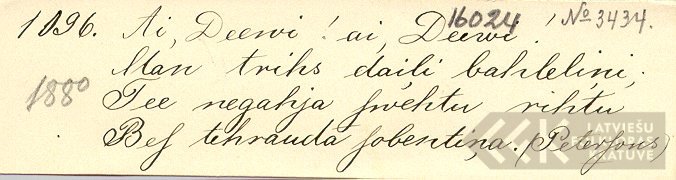 1096. Ai, Deewi! ai, Deewi! 16024 №3434.
Man trihs daiļi bahleliņi;
1880 Tee negahja swehtu rihtu
Bes tehrauda sobentiņa. (Petersons)
LATVIEŠU
FOLKLORAS
KRĀTUVE